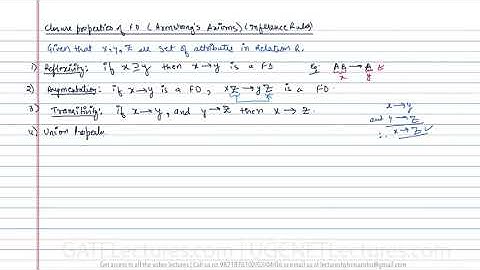 Closure properties of FD (Armstrong's Axioms) (Inference Rules)
Given that x, y, z are set of attributes in Relation R.
1) Reflexivity: if x ⊇ y then x→y is a FD Eg: AB → A
x y
2) Augmentation: if x→y is a FD, xz → yz is a FD.
3) Transitivity: if x→y, and y→z then x → z.
x → y
and y → z
∴ x → z ✓
4) Union Property
GATELectures.com | UGCNETLectures.com